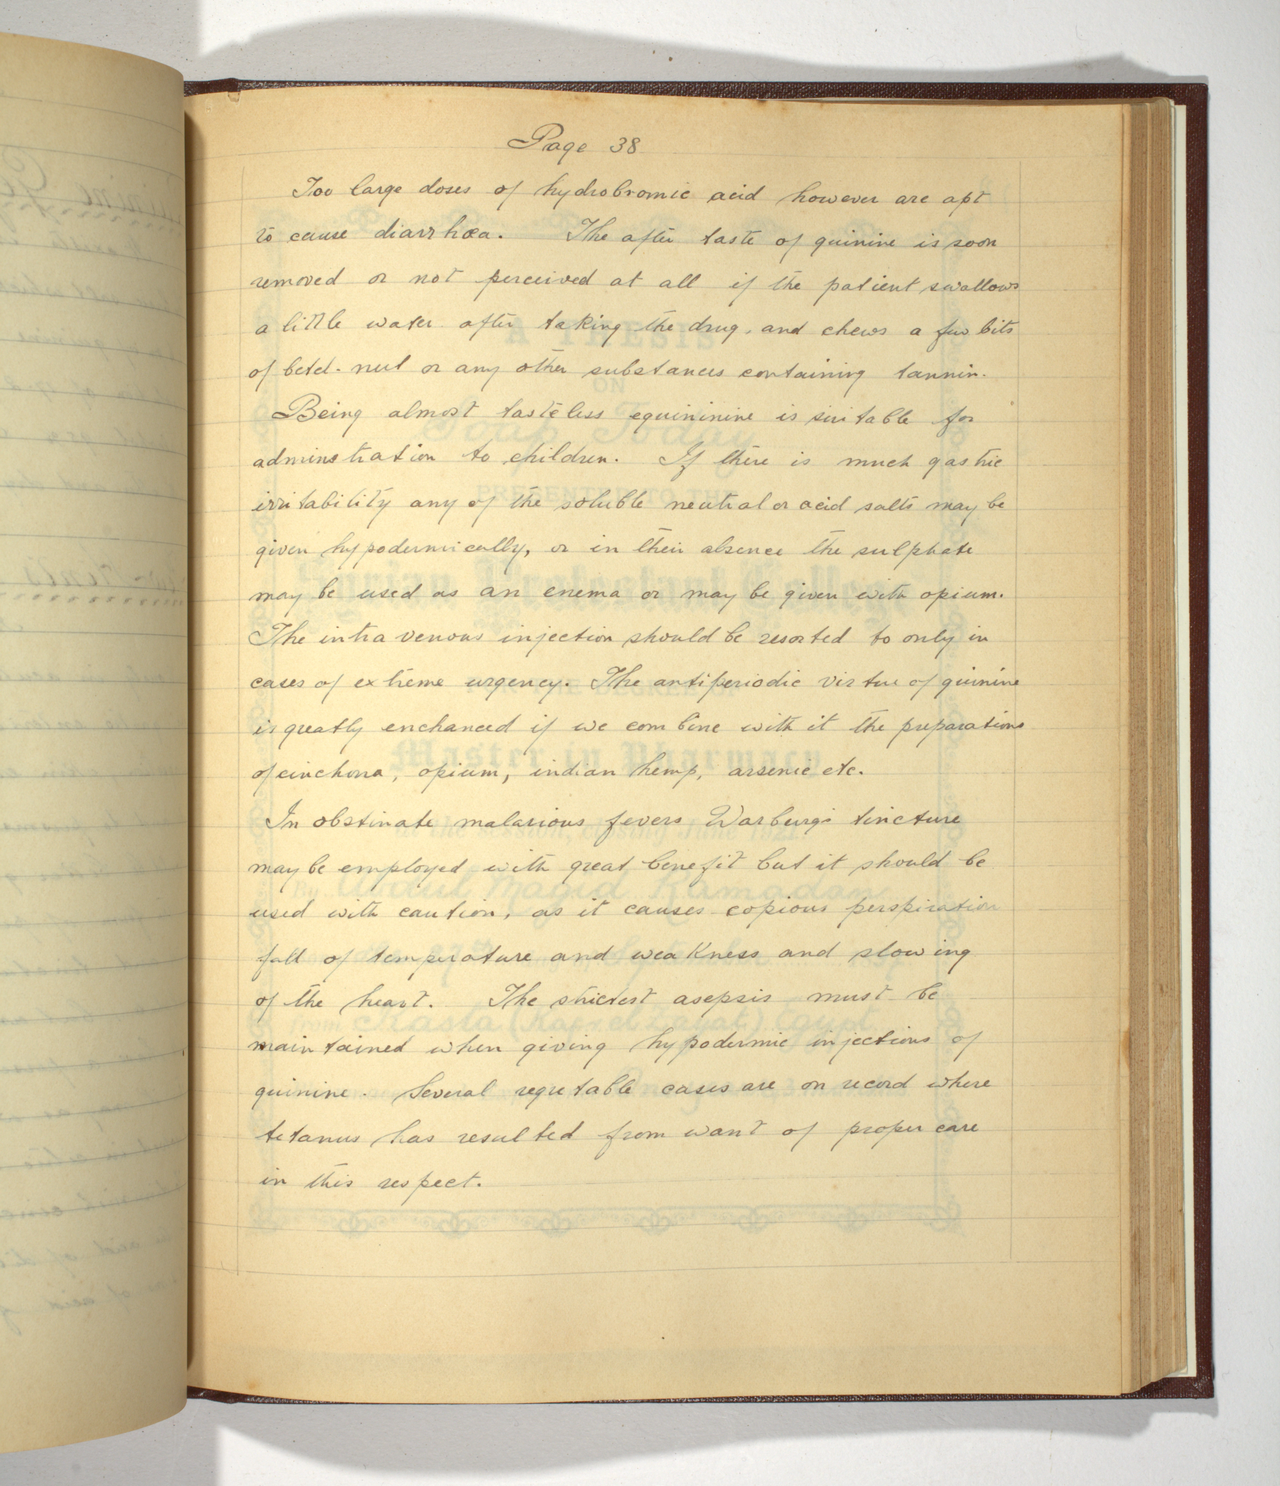 Page 38
Too large doses of hydrobromic acid however are apt
to cause diarrhœa. The after taste of quinine is soon
removed or not perceived at all if the patient swallows
a little water after taking the drug, and chews a few bits
of betel-nut or any other substances containing tannin.
Being almost tasteless equininine is suitable for
adminstration to children. If there is much gastric
irritability any of the soluble neutral or acid salts may be
given hypodermically, or in their absence the sulphate
may be used as an enema or may be given with opium.
The intra venous injection should be resorted to only in
cases of extreme urgency. The antiperiodic virtue of quinine
is greatly enchanced if we combine with it the preparations
of cinchona, opium, indian hemp, arsenic etc.
In obstinate malarious fevers Warburgs tincture
may be employed with great benefit but it should be
used with caution, as it causes copious perspiration
fall of temperature and weakness and slowing
of the heart. The strictest asepsis must be
maintained when giving hypodermic injections of
quinine. Several regretable cases are on record where
tetanus has resulted from want of proper care
in this respect.
A THESIS
ON
PRESENTED TO THE
Syrian Protestant College
Master in Pharmacy
By Abdul Magid Ramadan